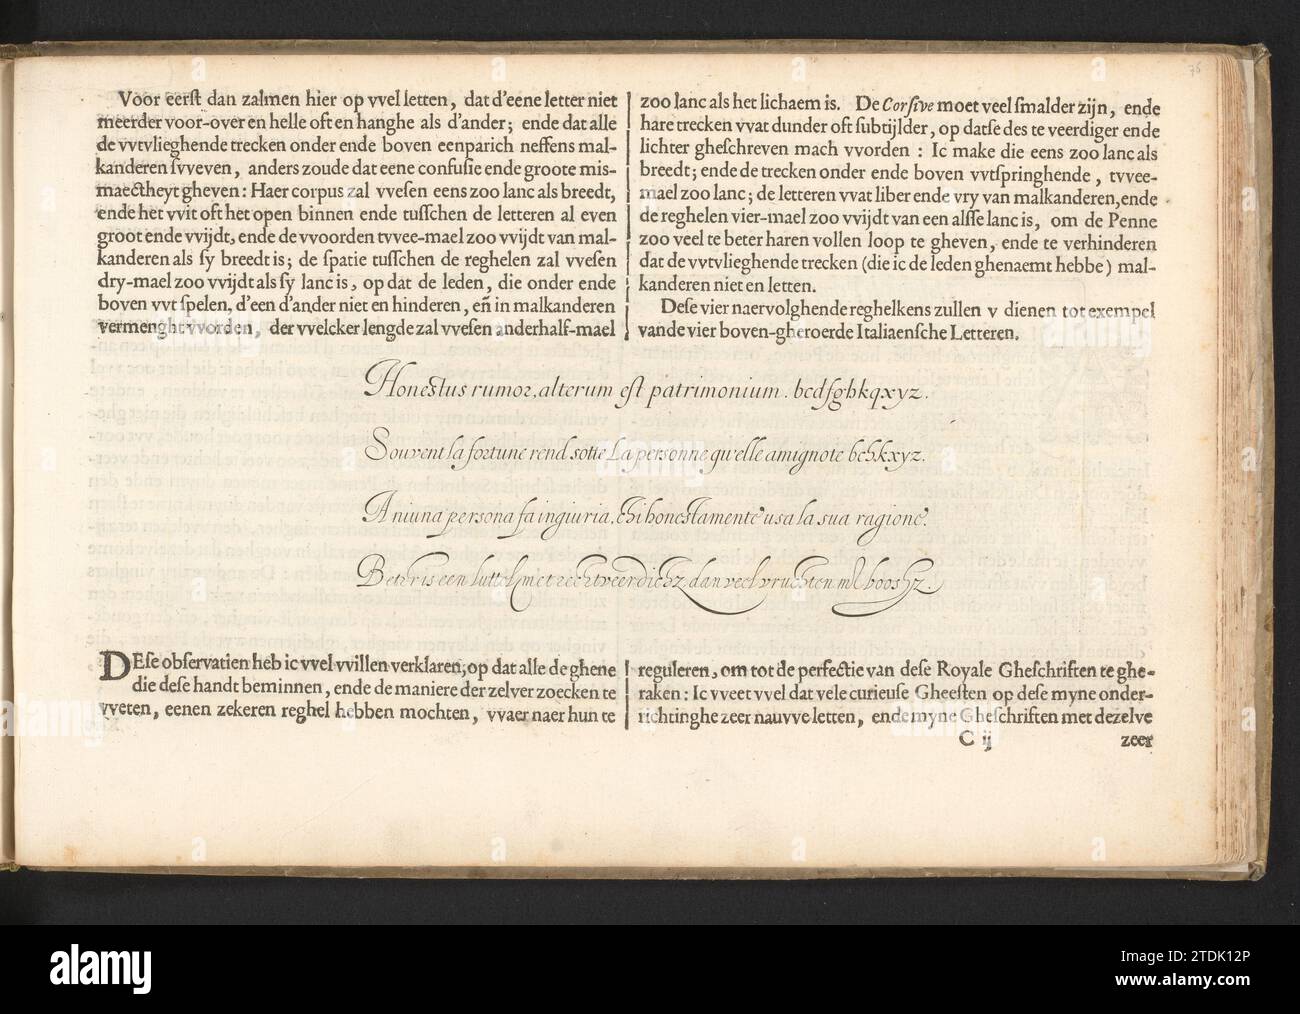 76
Voor eerſt dan zalmen hier op vvel letten, dat d'eene letter niet
meerder voor-over en helle oft en hanghe als d'ander; ende dat alle
de vvtvlieghende trecken onder ende boven eenparich neffens mal-
kanderen ſvveven, anders zoude dat eene confuſie ende groote miſ-
maectheyt gheven: Haer corpus zal vveſen eens zoo lanc als breedt,
ende het vvit oft het open binnen ende tuſſchen de letteren al even
groot ende vvijdt, ende de vvoorden tvvee-mael zoo vvijdt van mal-
kanderen als ſy breedt is; de ſpatie tuſſchen de reghelen zal vveſen
dry-mael zoo vvijdt als ſy lanc is, op dat de leden, die onder ende
boven vvt ſpelen, d'een d'ander niet en hinderen, en̄ in malkanderen
vermenght vvorden, der vvelcker lengde zal vveſen anderhalf-mael
zoo lanc als het lichaem is. De Corſive moet veel ſmalder zijn, ende
hare trecken vvat dunder oft ſubtijlder, op datſe des te veerdiger ende
lichter gheſchreven mach vvorden : Ic make die eens zoo lanc als
breedt; ende de trecken onder ende boven vvtſpringhende, tvvee-
mael zoo lanc; de letteren vvat liber ende vry van malkanderen, ende
de reghelen vier-mael zoo vvijdt van een alſſe lanc is, om de Penne
zoo veel te beter haren vollen loop te gheven, ende te verhinderen
dat de vvtvlieghende trecken (die ic de leden ghenaemt hebbe) mal-
kanderen niet en letten.
Deſe vier naervolghende reghelkens zullen v dienen tot exempel
vande vier boven-gheroerde Italiaenſche Letteren.
Honestus rumor, alterum est patrimonium. bcdfghkqxyz.
Souvent la fortune rend sotte La personne qu'elle amignote bchkxyz.
A niuna persona fa ingiuria, chi honestamente usa la sua ragione.
Beter is een luttel met rechtveerdicht, dan veel vruchten met boosht.
DEſe obſervatien heb ic vvel vvillen verklaren, op dat alle de ghene
die deſe handt beminnen, ende de maniere der zelver zoecken te
vveten, eenen zekeren reghel hebben mochten, vvaer naer hun te
reguleren, om tot de perfectie van deſe Royale Gheſchriften te ghe-
raken: Ic vveet vvel dat vele curieuſe Gheeſten op deſe myne onder-
richtinghe zeer nauvve letten, ende myne Gheſchriften met dezelve
C ij
zeer
alamy
Image ID: 2TDK12P
www.alamy.com